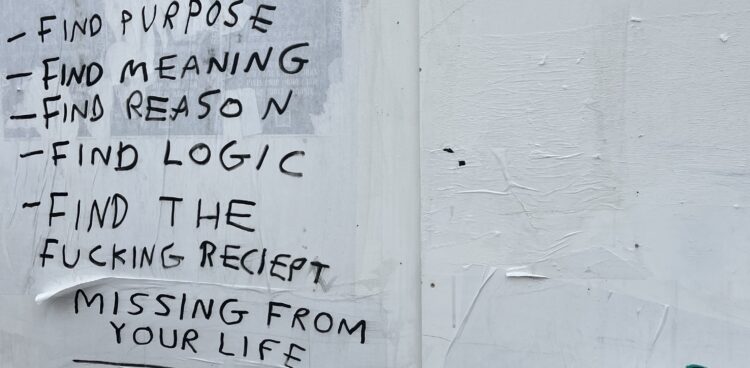 - FIND PURPOSE
- FIND MEANING
- FIND REASON
- FIND LOGIC
- FIND THE
FUCKING RECIEPT
MISSING FROM
YOUR LIFE